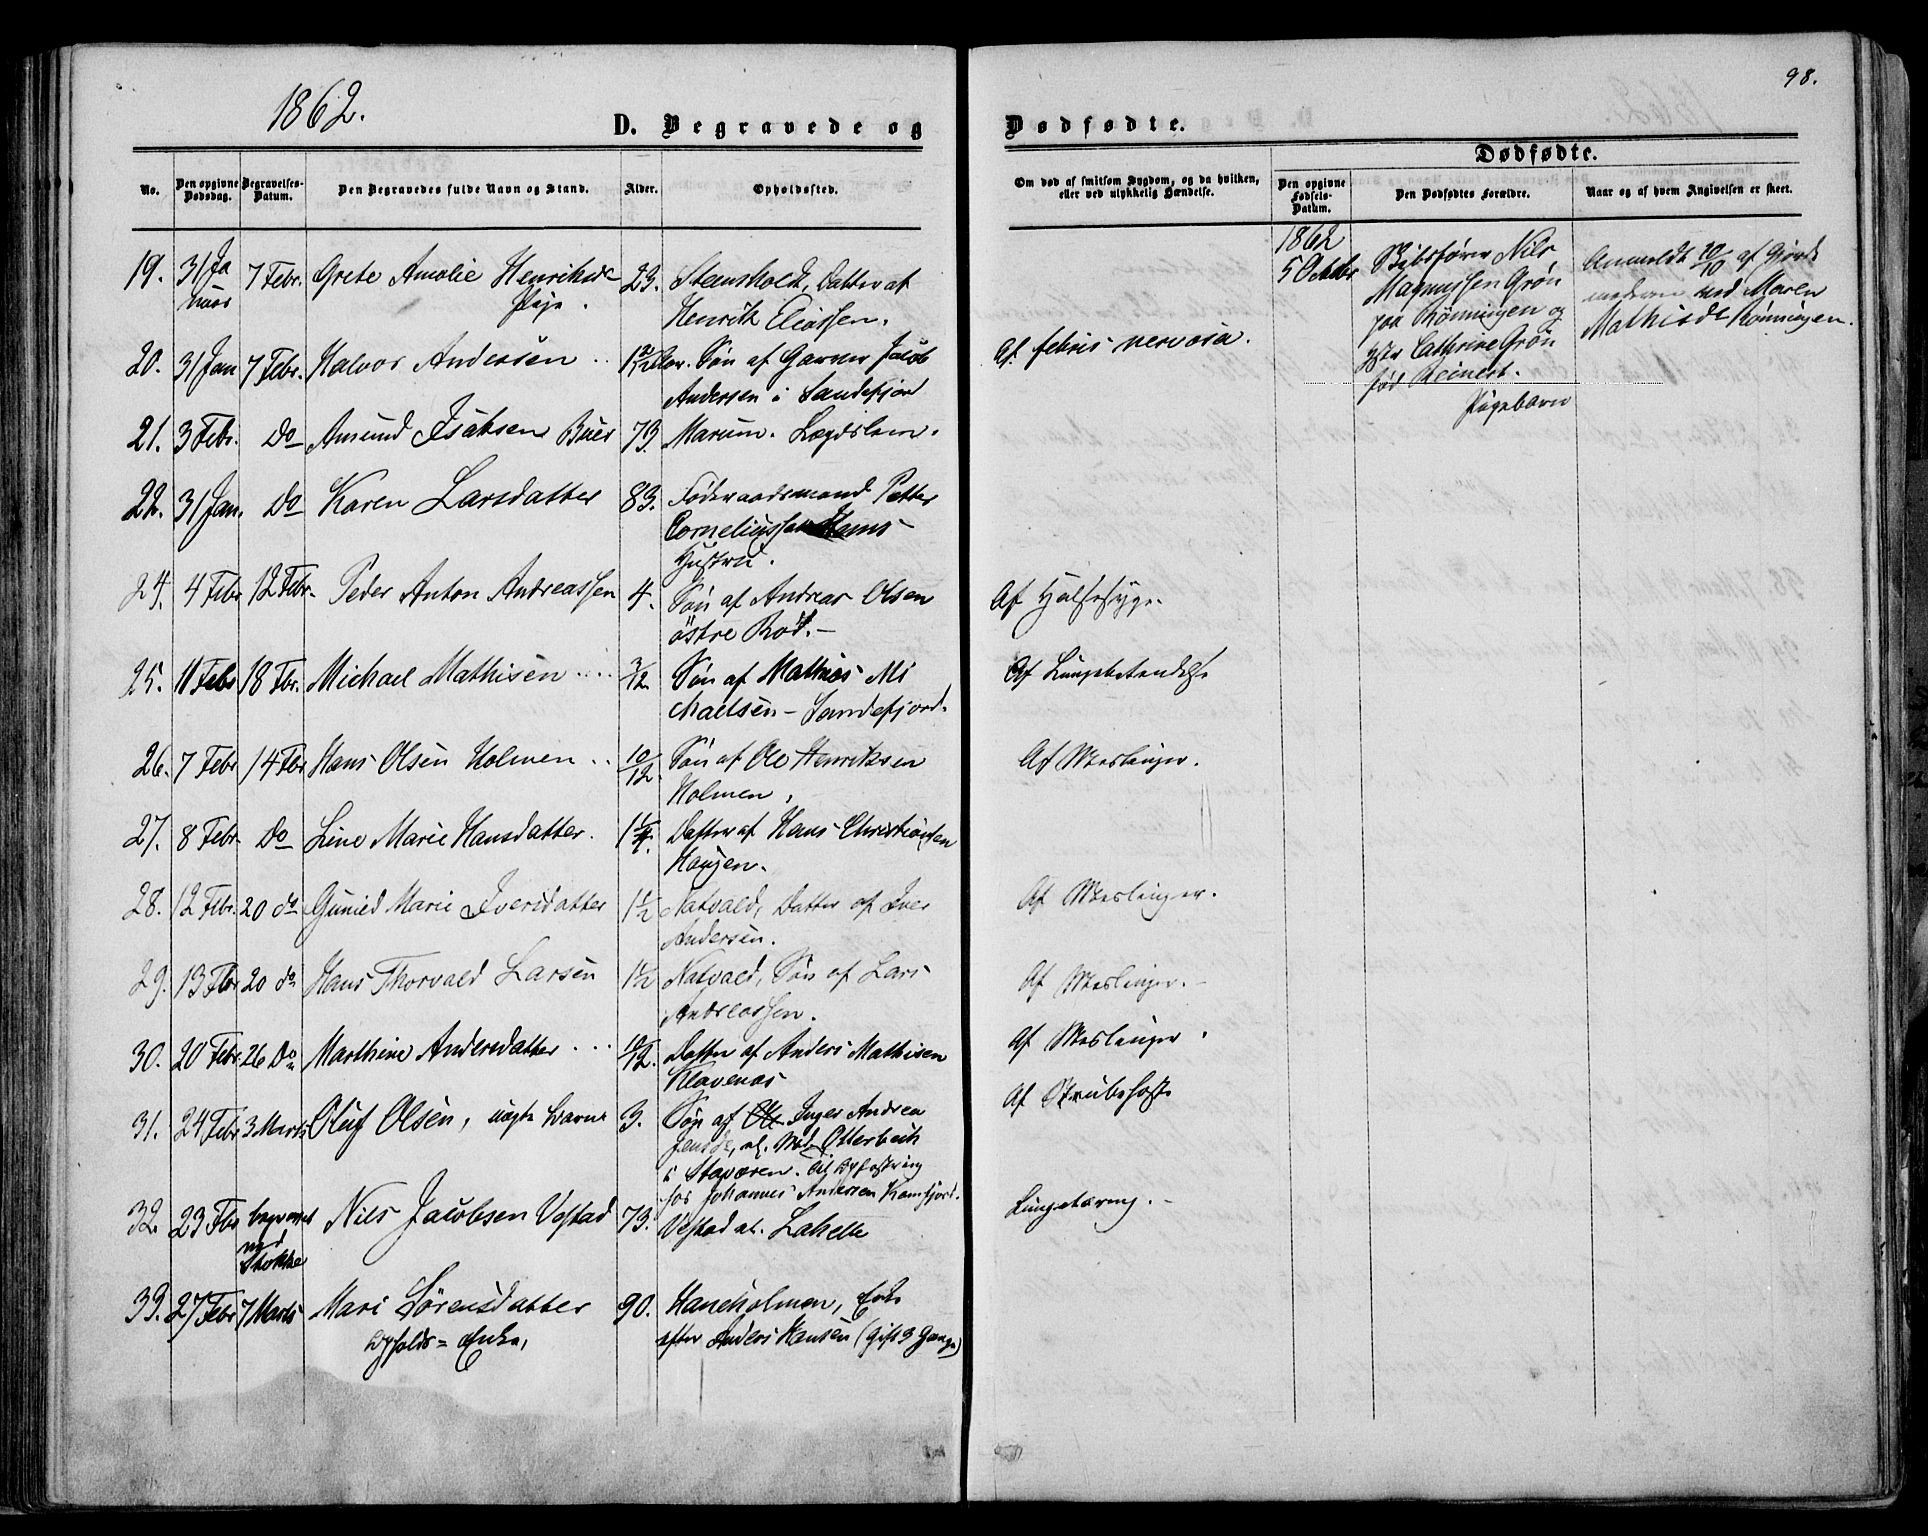 1862.
D. Begravede og
No.
Den opgivne Dødsdag.
Begravelses-Datum.
Den Begravedes fulde Navn og Stand.
Alder.
Opholdssted.
19. 31 Ja 7 Febr. Grete Amalie Henriksdr 23. Steensholt, Datter af
nuar Pige. Henrik Eliassen.
20. 31 Jan 7 Febr. Halvor Andersen .. Søn af Garver Jacob
Andersen i Sandefjord
21. 3 Febr. Do Amund Isaksen Buer 73. Marum. Lægdslem.
22. 31 Jan. Do Karen Larsdatter 83. Føderaadsmand Petter
Corneliussen
Hustru.
24. 4 Febr 12 Febr. Peder Anton Andreassen 4. Søn af Andreas Olsen
østre Rød.-
25. 11 Febr 18 Fbr. Michael Mathisen .... 3/12 Søn af Mathias Mi
chaelsen - Sandefjord.
26. 7 Febr 14 Fbr Hans Olsen Holmen .. 10/12 Søn af Ole Henriksen
Holmen,
27. 8 Febr Do Line Marie Hansdatter. 1 1/4. Datter af Hans Christiansen
Haugen.
28. 12 Febr. 20 do Gunild Marie Iversdatter 1 1/2 Natvald, Datter af Iver
Andersen.
29. 13 Fbr 20 do Hans Thorvald Larsen 1 1/2 Natvald, Søn af Lars
Andreassen.
30. 20 Febr. 26 Do Marthine Andersdatter ... 10/12. Datter af Anders Mathisen
Klavenæs
31. 24 Febr 3 Marts Oluf Olsen, uægte Barn 3. Søn af Ole Inger Andrea
Jensdr, og Otterbech
i Staværen. Til Opfostring
hos Johannes Andersen Kamfjord.
32. 23 Fbr begravet Nils Jacobsen Vestad 73. Vestad al. Lahelle
ved
Stokke
33. 27 Febr 7 Marts Mari Sørensdatter 90. Haneholmen, Enke
Opholds = Enke, efter Anders Hansen (Gift 3 Gange)
98.
Dødfødte.
Dødfødte.
Om død af smitsom Sygdom, og da hvilken,
eller ved ulykkelig Hændelse.
Den opgivne Fødsels-Datum.
Den Dødfødtes Forældre.
Naar og af hvem Angivelsen er skeet.
1862
5 Octbr
Skibsfører Nils
Magnussen Grøn
paa Rønningen og
Hstr Cathrine Grøn
fød Reinert.
Pigebarn
Anmeldt 20/10 af Gjorde
moderen ved Maren
Mathisdr Rønningen.
Af febris nervosa.
Af Halssyge.
Af Lungebetændelse
Af Meslinger.
Af Meslinger.
Af Meslinger.
Af Meslinger.
Af Strubehoste
Lungetæring.